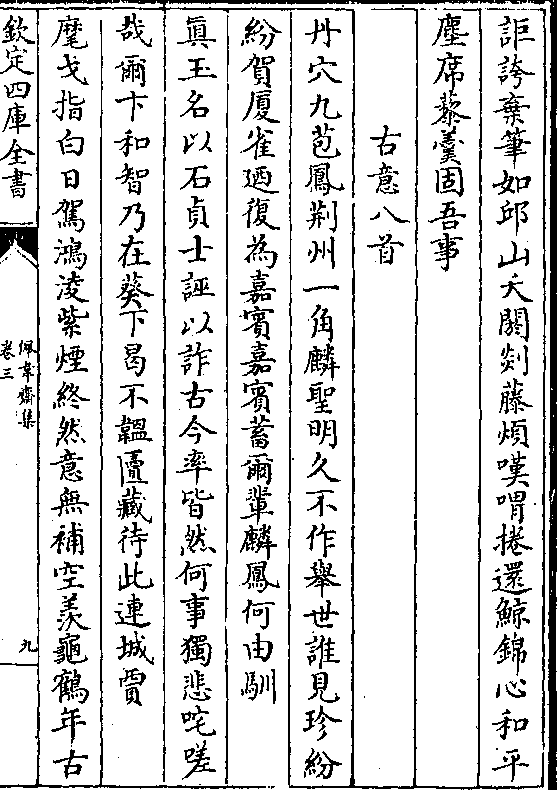 詎誇棄筆如邱山夭閼剡藤煩嘆喟捲還鯨錦心和平
塵席藜羹固吾事
古意八首
丹穴九苞鳳荆州一角麟聖明久不作舉世誰見珍紛
紛賀厦雀廼復為嘉賓嘉賓蓄爾輩麟鳳何由馴
眞玉名以石貞士誣以詐古今率皆然何事獨悲咤嗟
哉爾卞和智乃在葵下曷不韞匵藏待此連城賈
麾戈指白日駕鴻淩紫煙終然意無補空羡龜鶴年古
欽定四庫全書
佩韋齋集
卷三
九